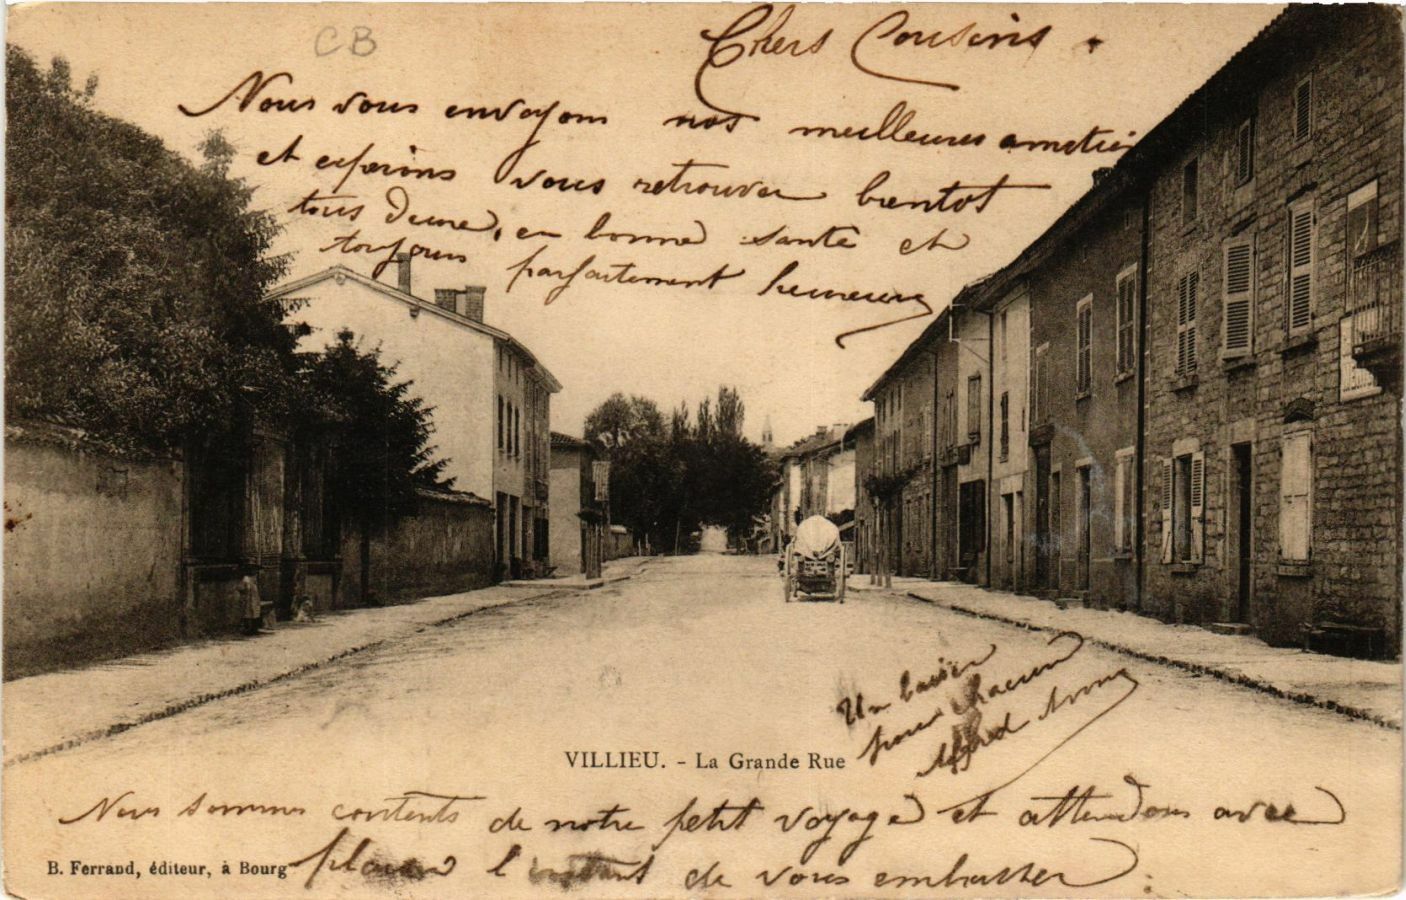 CB
Chers Cousins.
Nous vous envoyons nos meilleures amitiés
et esperons vous retrouver bientot
tous deux, en bonne santé et
toujours parfaitement heureux
Un baiser
pour chacun
Alfred
VILLIEU. - La Grande Rue
Nous sommes contents de notre petit voyage et attendons avec
B. Ferrand, éditeur, à Bourg
plaisir l'instant de vous embrasser.